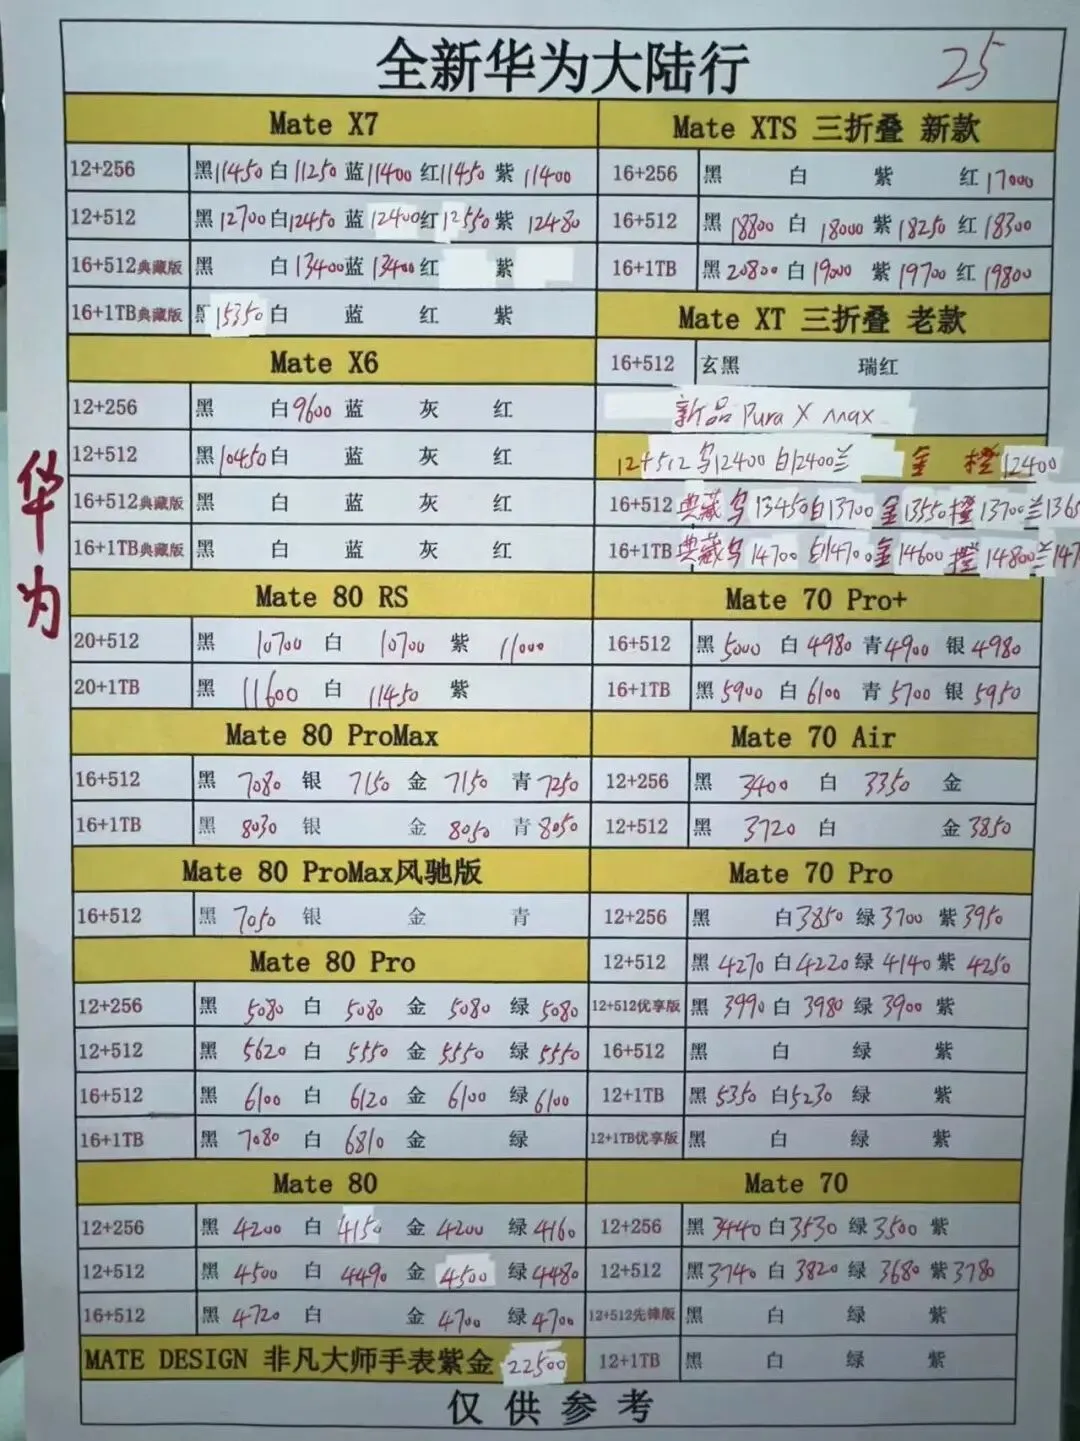 全新华为大陆行 25
华为
Mate X7
12+256 黑11450 白11250 蓝11400 红11450 紫11400
12+512 黑12700 白12450 蓝12400 红12550 紫12480
16+512典藏版 黑 白13400 蓝13400 红 紫
16+1TB典藏版 黑15350 白 蓝 红 紫
Mate X6
12+256 黑 白9600 蓝 灰 红
12+512 黑10450 白 蓝 灰 红
16+512典藏版 黑 白 蓝 灰 红
16+1TB典藏版 黑 白 蓝 灰 红
Mate 80 RS
20+512 黑 10700 白 10700 紫 11000
20+1TB 黑 11600 白 11450 紫
Mate 80 ProMax
16+512 黑 7080 银 7150 金 7150 青 7250
16+1TB 黑 8030 银 金 8050 青 8050
Mate 80 ProMax风驰版
16+512 黑 7050 银 金 青
Mate 80 Pro
12+256 黑 5080 白 5080 金 5080 绿 5080
12+512 黑 5620 白 5550 金 5550 绿 5550
16+512 黑 6100 白 6120 金 6100 绿 6100
16+1TB 黑 7080 白 6810 金 绿
Mate 80
12+256 黑 4200 白 4150 金 4200 绿 4160
12+512 黑 4500 白 4490 金 4500 绿 4480
16+512 黑 4720 白 金 4700 绿 4700
MATE DESIGN 非凡大师手表紫金 22500
Mate XTS 三折叠 新款
16+256 黑 白 紫 红 17000
16+512 黑 18800 白 18000 紫 18250 红 18300
16+1TB 黑 20800 白 19000 紫 19700 红 19800
Mate XT 三折叠 老款
16+512 玄黑 瑞红
新品 Pura X max
12+512 乌12400 白12400 兰 金 橙12400
16+512 典藏 乌13450 白13700 金13550 橙13700 兰1365
16+1TB 典藏 乌14700 白14700 金14600 橙14800 兰147
Mate 70 Pro+
16+512 黑 5000 白 4980 青 4900 银 4980
16+1TB 黑 5900 白 6100 青 5700 银 5950
Mate 70 Air
12+256 黑 3400 白 3350 金
12+512 黑 3720 白 金 3850
Mate 70 Pro
12+256 黑 白 3850 绿 3700 紫 3950
12+512 黑 4270 白 4220 绿 4140 紫 4250
12+512优享版 黑 3990 白 3980 绿 3900 紫
16+512 黑 白 绿 紫
12+1TB 黑 5350 白 5230 绿 紫
12+1TB优享版 黑 白 绿 紫
Mate 70
12+256 黑 3440 白 3530 绿 3500 紫
12+512 黑 3740 白 3820 绿 3680 紫 3780
12+512先锋版 黑 白 绿 紫
12+1TB 黑 白 绿 紫
仅供参考